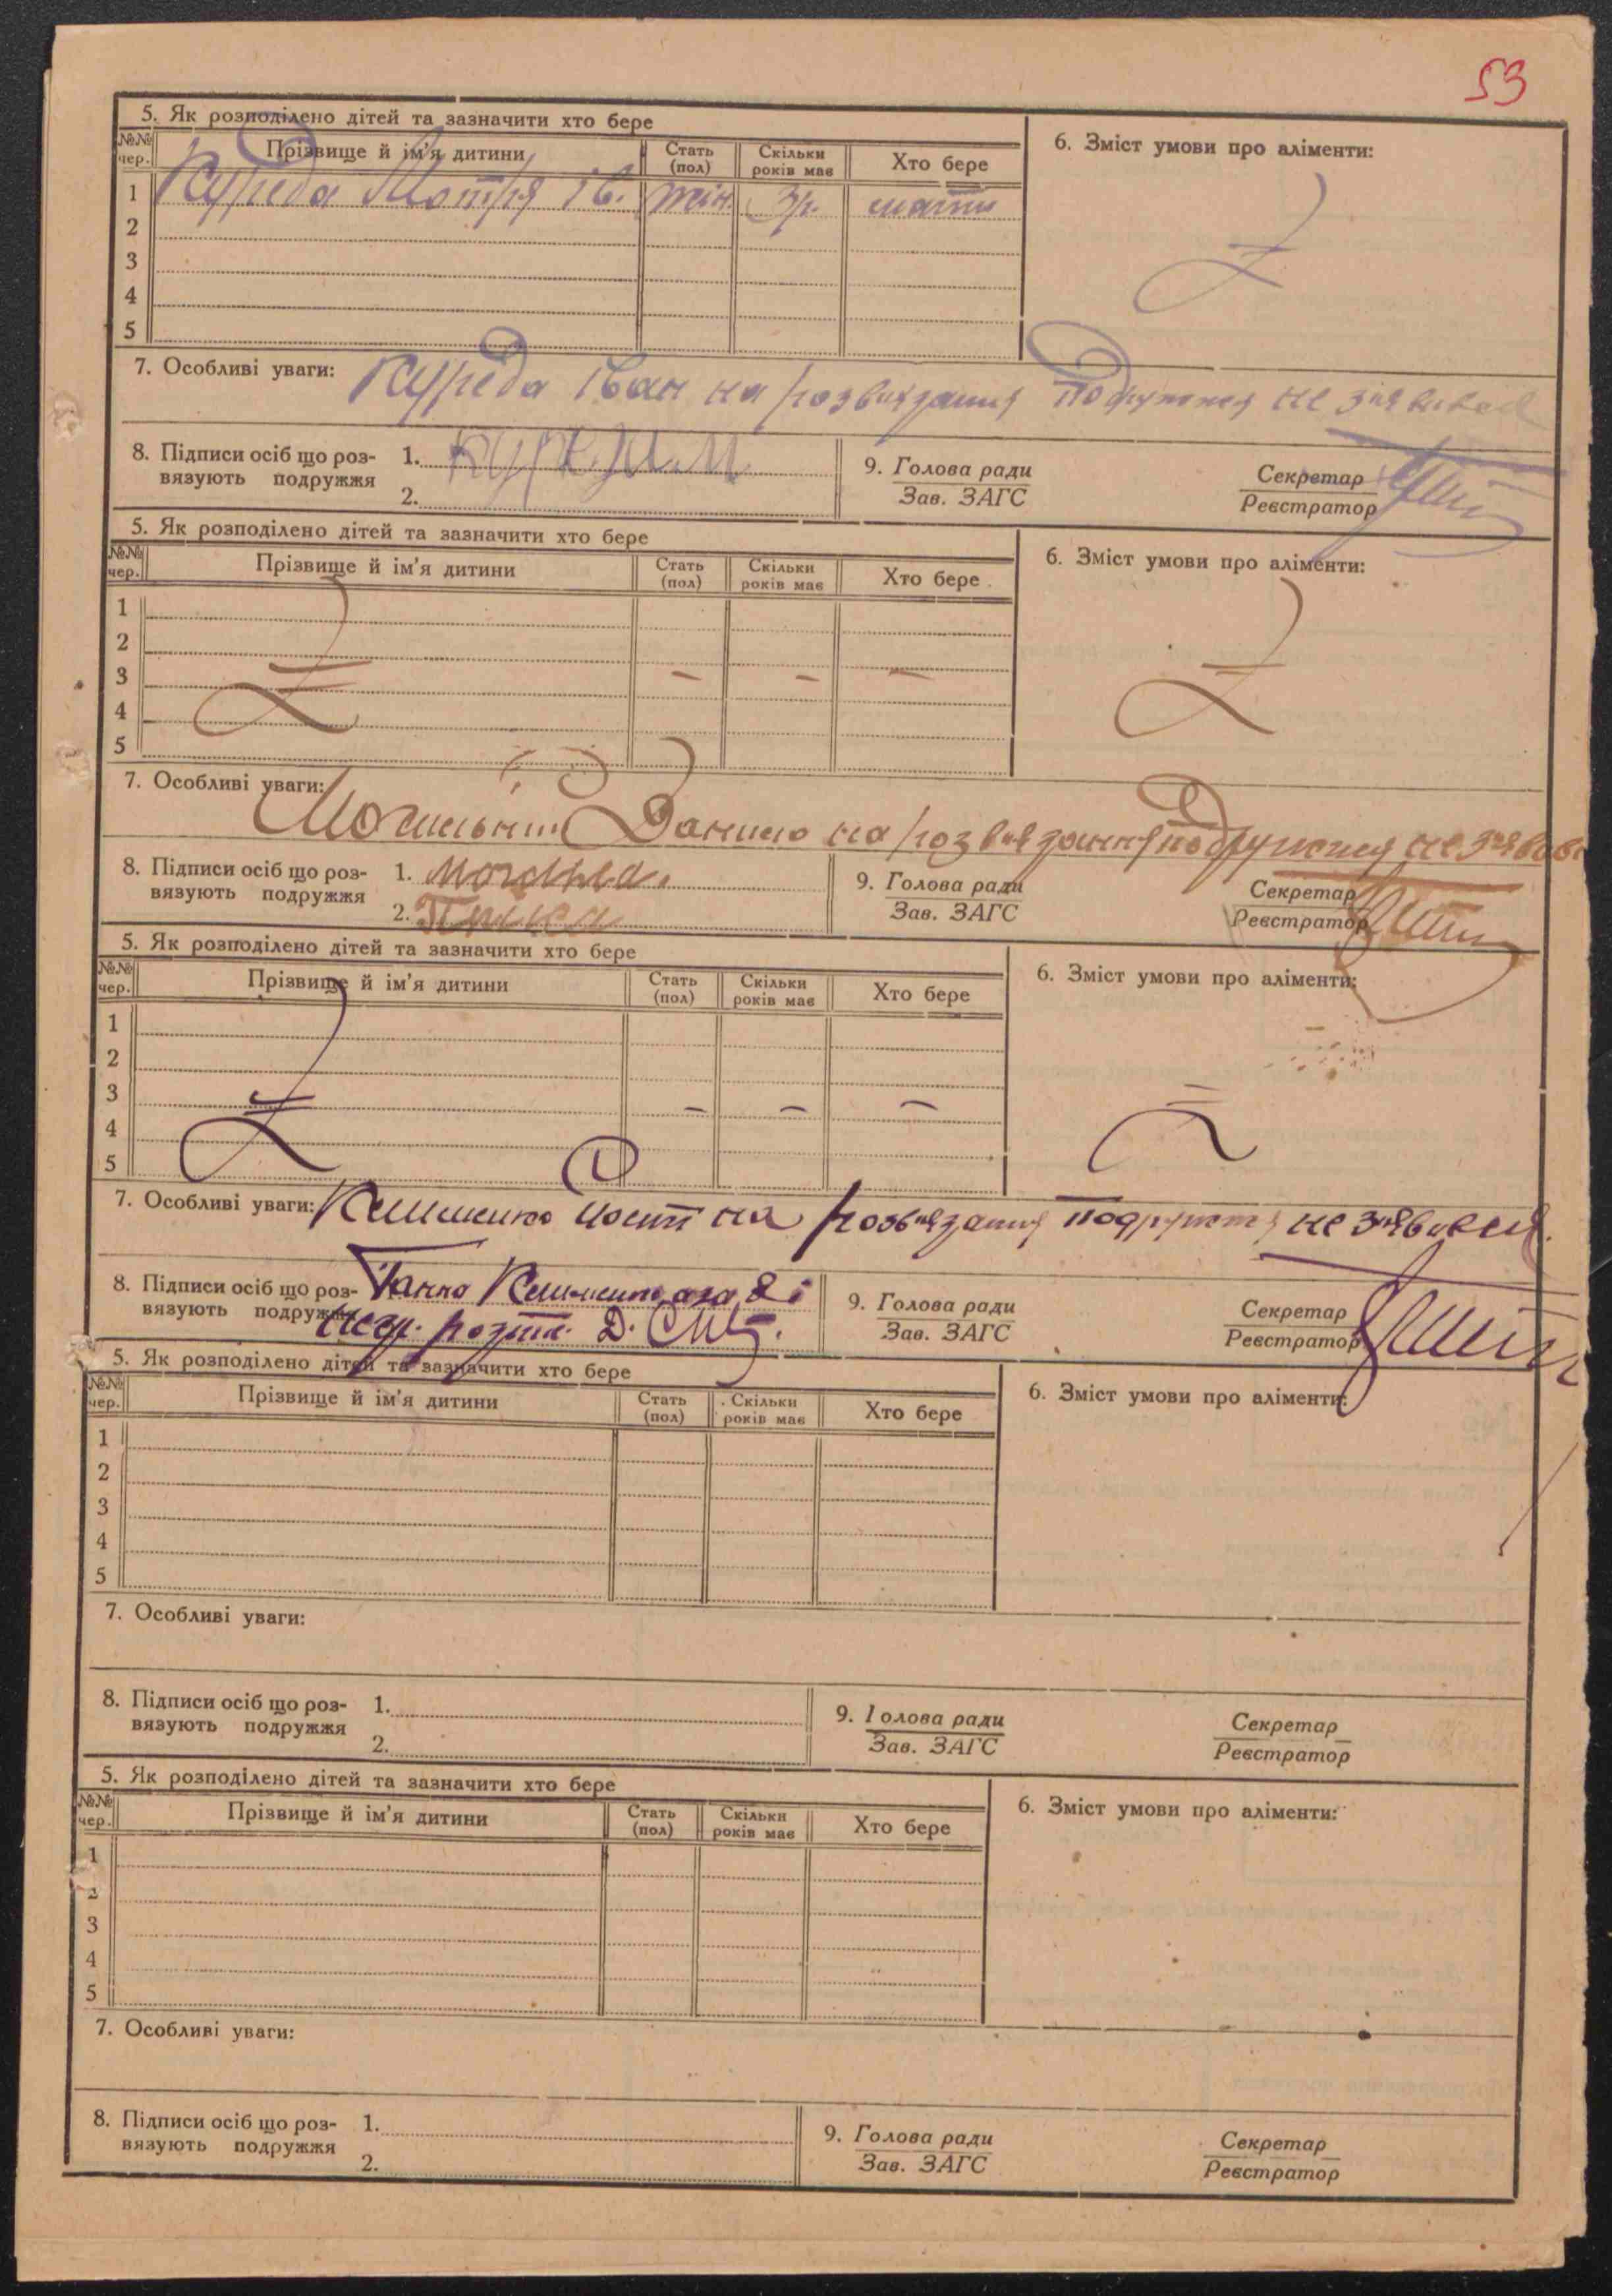 53
5. Як розподілено дітей та зазначити хто бере
6. Зміст умови про аліменти:
№№ чер. Прізвище й ім'я дитини Стать (пол) Скільки років має Хто бере
1 Куреда Мотря Ів. жін. 3 р. мати
2
3
4
5
7. Особливі уваги: Куреда Іван на розвязання подружжя не зявився
8. Підписи осіб що роз- 1.
вязують подружжя 2.
9. Голова ради Секретар
Зав. ЗАГС Реєстратор
5. Як розподілено дітей та зазначити хто бере
6. Зміст умови про аліменти:
№№ чер. Прізвище й ім'я дитини Стать (пол) Скільки років має Хто бере
1
2
3 – – –
4
5
7. Особливі уваги: Данило на розвязання подружжя не
8. Підписи осіб що роз- 1. Могильна.
вязують подружжя 2.
9. Голова ради Секретар
Зав. ЗАГС Реєстратор
5. Як розподілено дітей та зазначити хто бере
6. Зміст умови про аліменти:
№№ чер. Прізвище й ім'я дитини Стать (пол) Скільки років має Хто бере
1
2
3 – – –
4
5
7. Особливі уваги: Клименко на розвязання подружжя не зявився.
8. Підписи осіб що роз- Ганна Клименко
вязують подружжя
9. Голова ради Секретар
Зав. ЗАГС Реєстратор
5. Як розподілено дітей та зазначити хто бере
6. Зміст умови про аліменти:
№№ чер. Прізвище й ім'я дитини Стать (пол) Скільки років має Хто бере
1
2
3
4
5
7. Особливі уваги:
8. Підписи осіб що роз- 1.
вязують подружжя 2.
9. Голова ради Секретар
Зав. ЗАГС Реєстратор
5. Як розподілено дітей та зазначити хто бере
6. Зміст умови про аліменти:
№№ чер. Прізвище й ім'я дитини Стать (пол) Скільки років має Хто бере
1
2
3
4
5
7. Особливі уваги:
8. Підписи осіб що роз- 1.
вязують подружжя 2.
9. Голова ради Секретар
Зав. ЗАГС Реєстратор